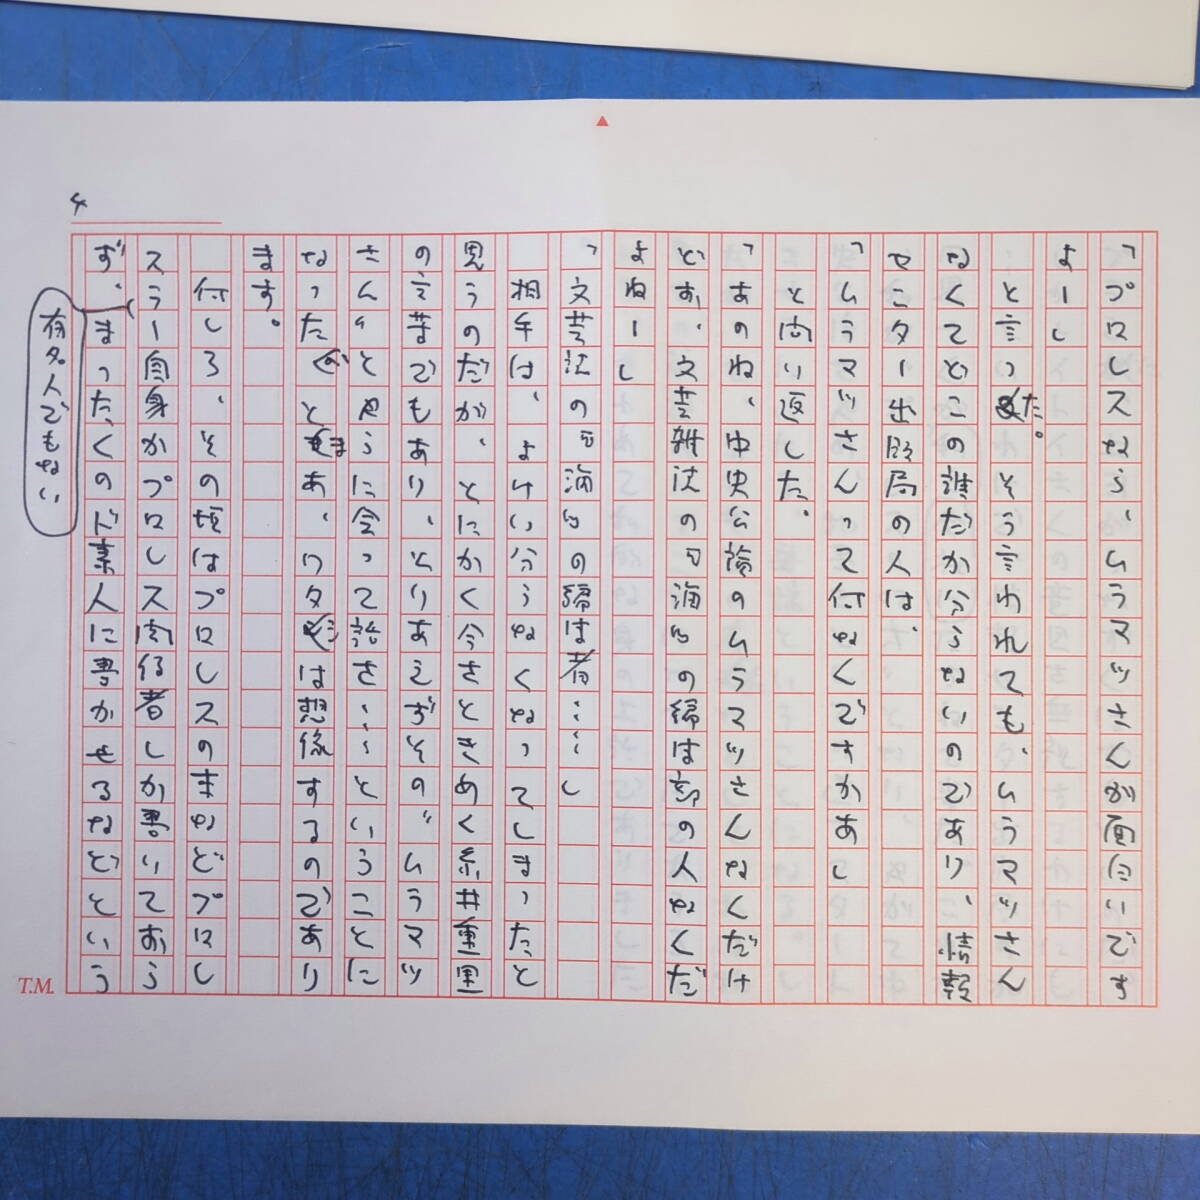 4
「プロレスなら、ムラマツさんが面白いです
よー」
と言った。そう言われても、ムラマツさん
なくてどこの誰だか分らないのであり、情報
センター出版局の人は、
「ムラマツさんって何なんですかあ」
と問い返した。
「あのね、中央公論のムラマツさんなんだけ
どぉ、文芸雑誌の〝海〟の編集部の人なんだ
よねー」
「文芸誌の〝海〟の編集者……」
相手は、よけい分らなくなってしまったと
思うのだが、とにかく今ときめく糸井重里
の言葉でもあり、とりあえずその〝ムラマツ
さん〟とやらに会って話さ……ということに
なったと、まあ、ワタシは想像するのであり
ます。
何しろ、その頃はプロレスのまなどプロレ
スラー自身かプロレス関係者しか書いておら
ず、有名人でもないまったくのド素人に書かせるなどという
T.M.